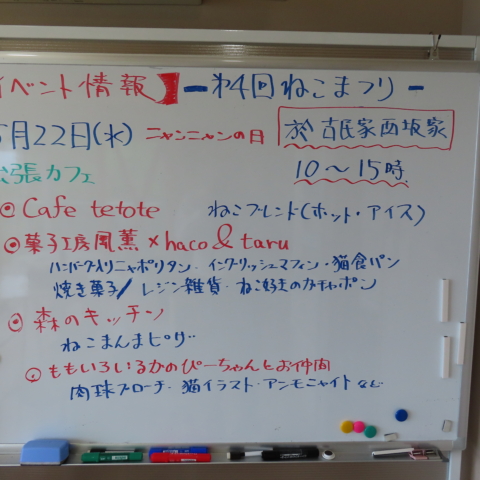 イベント情報】ー第4回ねこまつりー
5月22日(水) ニャンニャンの日
於 古民家西坂家
10〜15時
出張カフェ
◎Cafe tetote ねこブレンド(ホット・アイス)
◎菓子工房風薫×haco&taru
ハンバーグ入りニャポリタン・イングリッシュマフィン・猫食パン
焼き菓子/レジン雑貨・ねこ好きのガチャポン
◎森のキッチン
ねこまんまピザ・・
◎ももいろいるかのぴーちゃんとお仲間
肉球ブローチ・猫イラスト・アンモニャイトなど